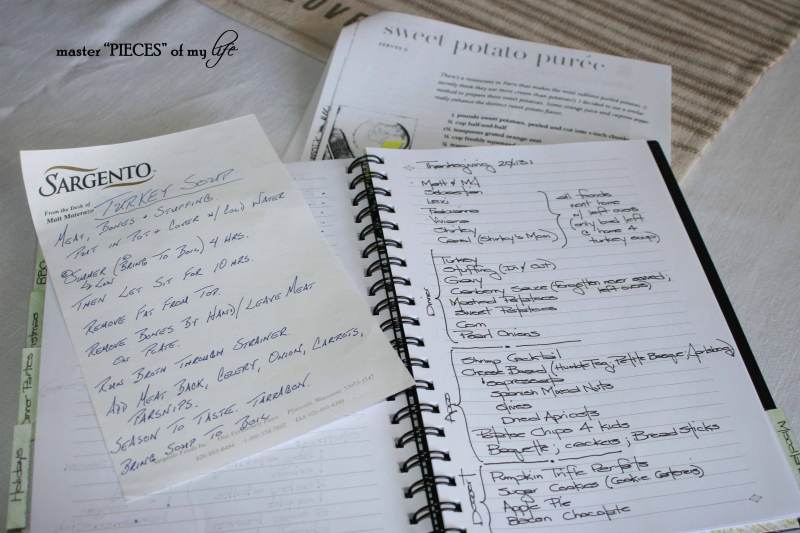 master "PIECES" of my life
LOVE
sweet potato purée
SERVES 6
There's a restaurant in Paris that makes the most sublime puréed potatoes. I
secretly think they are more cream than potatoes! I decided to use a similar
method to prepare these sweet potatoes. Some orange juice and
really enhance the distinct sweet potato flavor.
pounds sweet potatoes, peeled and cut into 1-inch chunks
cup half-and-half
teaspoons grated orange zest
cup freshly squeezed
SARGENTO
From the Desk of
Matt
TURKEY SOUP
MEAT, BONES + STUFFING.
PUT IN POT + COVER W/ COLD WATER
SIMMER (BRING TO BOIL) 4 HRS.
THEN LET SIT FOR 10 HRS.
REMOVE FAT FROM TOP.
REMOVE BONES BY HAND/LEAVE MEAT
ON PLATE.
RUN BROTH THROUGH STRAINER.
ADD MEAT BACK, CELERY, ONION, CARROTS,
PARSNIPS.
SEASON TO TASTE. TARRAGON.
BRING SOUP TO BOIL
Sargento Foods Inc. Plymouth, Wisconsin 53073
BBQ
Dinner Parties
Holidays
Thanksgiving 2013:
Matt & Me
Sebastian
Lexi
Fabianne
Viviana
Shirley
Carol (Shirley's Mom)
all friends
went home
w/ left overs
(only had left
overs 4
turkey soup)
Dinner
Turkey
Stuffing (IN & Out)
Gravy
Cranberry Sauce (forgotten never served;
left overs)
Mashed Potatoes
Sweet Potatoes
Corn
Pearl Onions
App
Shrimp Cocktail
Cheese Board
Spanish Mixed Nuts
Olives
Dried Apricots
Potatoe Chips 4 kids
Baguette, crackers, Bread Sticks
Dessert
Pumpkin Trifle Parfaits
Sugar Cookies (Cookie Cutters)
Apple Pie
Bacon Chocolate